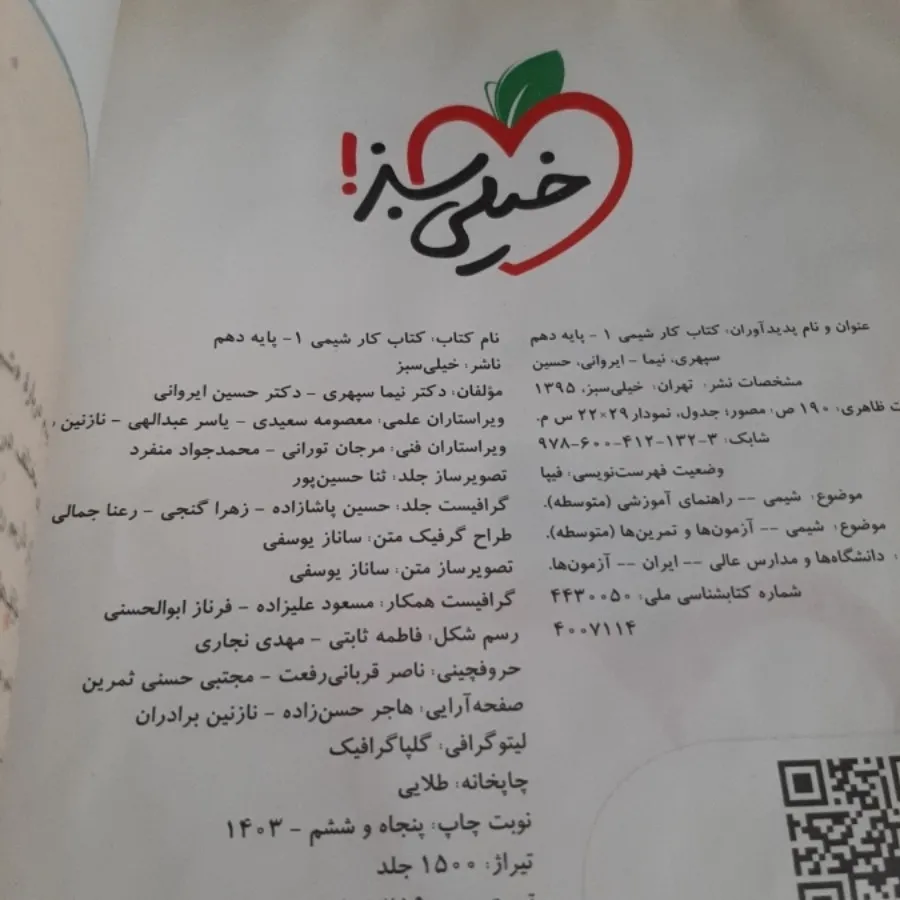 خیلی سبز!
عنوان و نام پدیدآوران: کتاب کار شیمی ۱ - پایه دهم
سپهری، نیما - ایروانی، حسین
مشخصات نشر: تهران: خیلی‌سبز، ۱۳۹۵
ظاهری: ۱۹۰ ص: مصور؛ جدول، نمودار ۲۹×۲۲ س م.
شابک: ۳-۱۳۲-۴۱۲-۶۰۰-۹۷۸
وضعیت فهرست‌نویسی: فیپا
موضوع: شیمی -- راهنمای آموزشی (متوسطه).
موضوع: شیمی -- آزمون‌ها و تمرین‌ها (متوسطه).
: دانشگاه‌ها و مدارس عالی -- ایران -- آزمون‌ها.
شماره کتابشناسی ملی: ۴۴۳۰۰۵۰
۴۰۰۷۱۱۴
نام کتاب: کتاب کار شیمی ۱- پایه دهم
ناشر: خیلی‌سبز
مؤلفان: دکتر نیما سپهری - دکتر حسین ایروانی
ویراستاران علمی: معصومه سعیدی - یاسر عبدالهی - نازنین
ویراستاران فنی: مرجان تورانی - محمدجواد منفرد
تصویرساز جلد: ثنا حسین‌پور
گرافیست جلد: حسین پاشازاده - زهرا گنجی - رعنا جمالی
طراح گرفیک متن: ساناز یوسفی
تصویرساز متن: ساناز یوسفی
گرافیست همکار: مسعود علیزاده - فرناز ابوالحسنی
رسم شکل: فاطمه ثابتی - مهدی نجاری
حروفچینی: ناصر قربانی‌رفعت - مجتبی حسنی ثمرین
صفحه‌آرایی: هاجر حسن‌زاده - نازنین برادران
لیتوگرافی: گلپاگرافیک
چاپخانه: طلایی
نوبت چاپ: پنجاه و ششم - ۱۴۰۳
تیراژ: ۱۵۰۰ جلد